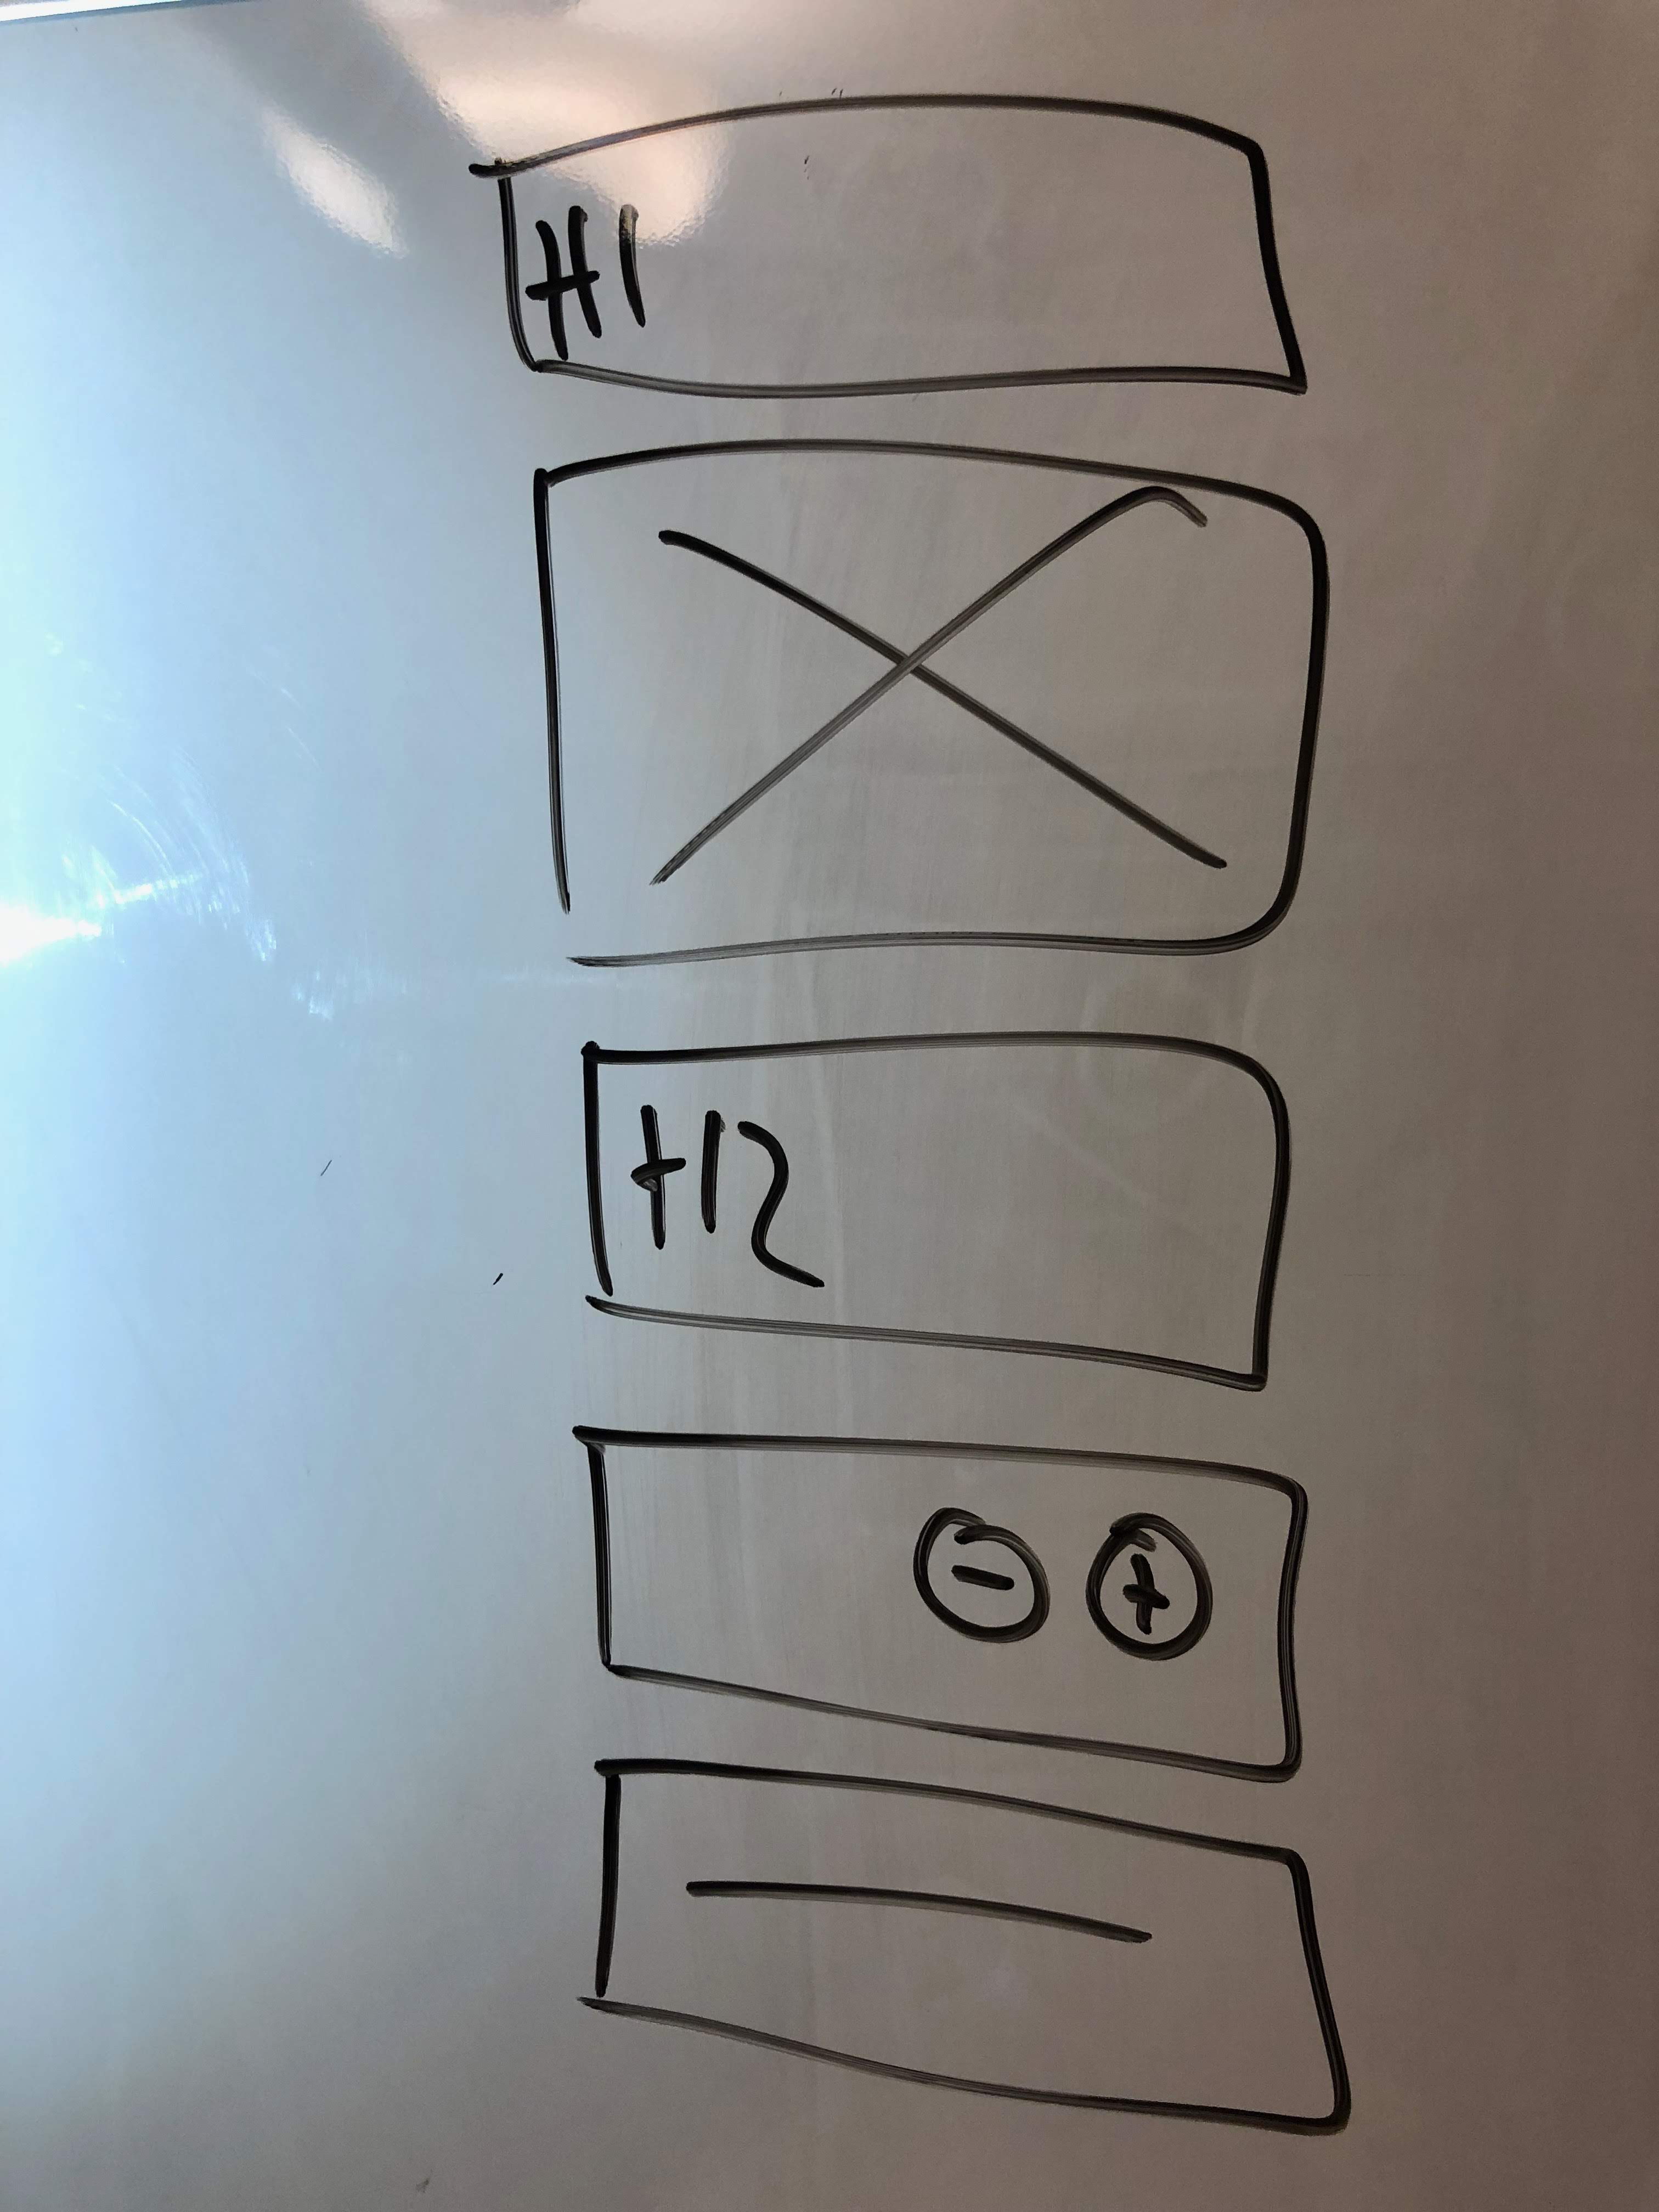 H1
H2
- +